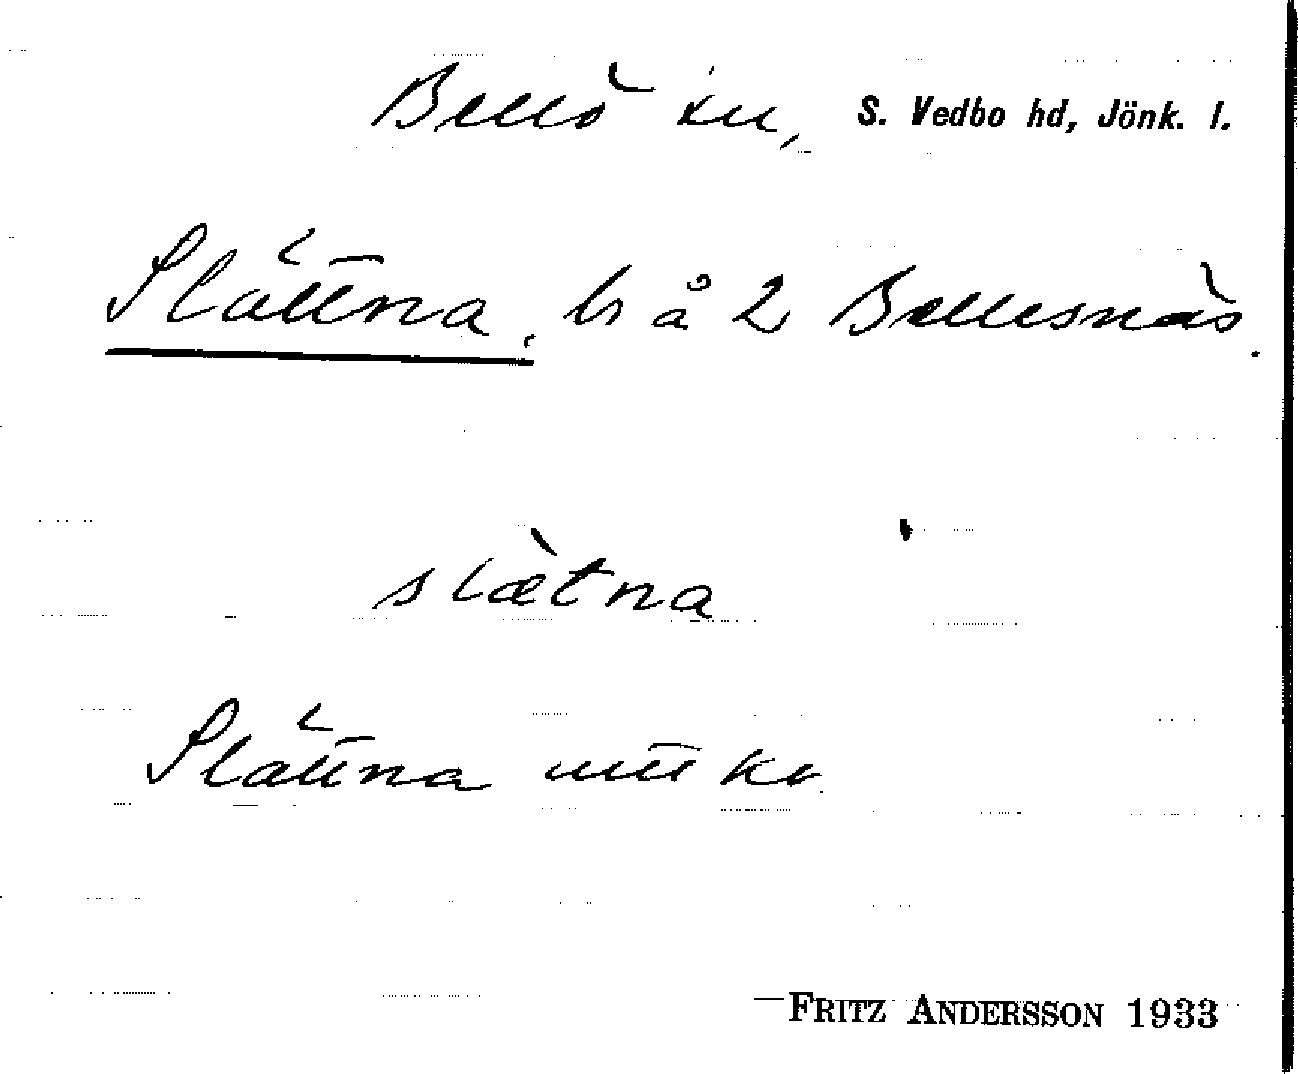 Bellö sn, S. Vedbo hd, Jönk. l.
Slättna. ls å 2 Bellesnäs.
slætna
Slättna
FRITZ ANDERSSON 1933